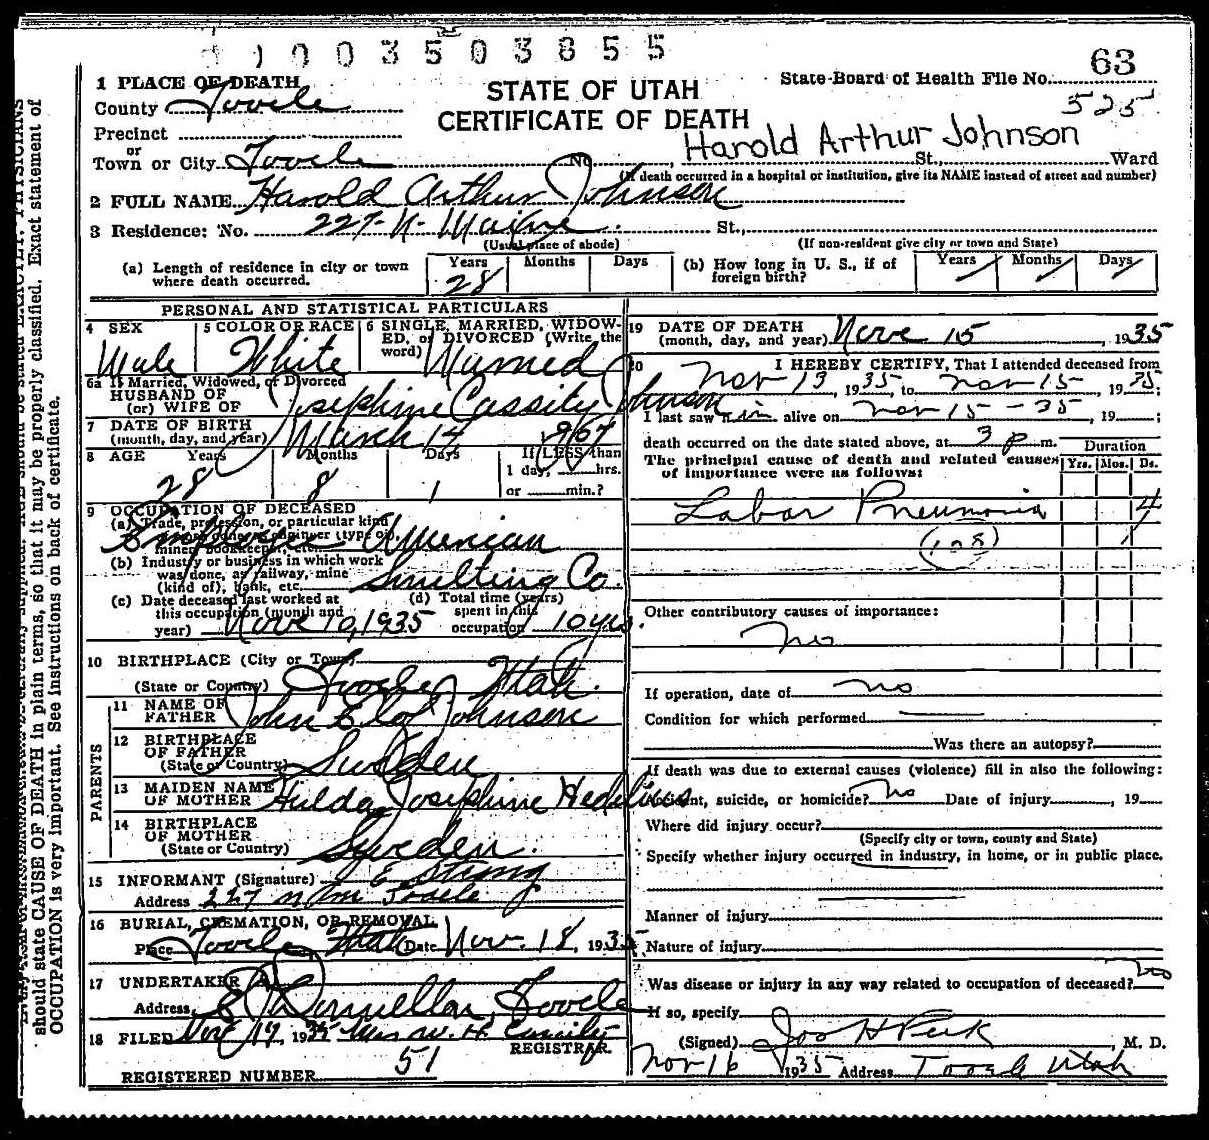 1003503855
63
1 PLACE OF DEATH
STATE OF UTAH
CERTIFICATE OF DEATH
State Board of Health File No.
525
County Tooele
Precinct
or
Town or City Tooele No. Harold Arthur Johnson St., Ward
(If death occurred in a hospital or institution, give its NAME instead of street and number)
2 FULL NAME Harold Arthur Johnson
3 Residence: No. 227-N- Maine St.,
(Usual place of abode) (If non-resident give city or town and State)
(a) Length of residence in city or town where death occurred. Years 28 Months Days
(b) How long in U. S., if of foreign birth? Years Months Days
PERSONAL AND STATISTICAL PARTICULARS
4 SEX Male
5 COLOR OR RACE White
6 SINGLE, MARRIED, WIDOWED, or DIVORCED (Write the word) Married
6a If Married, Widowed, or Divorced
HUSBAND OF
(or) WIFE OF Josephine Cassity Johnson
7 DATE OF BIRTH
(month, day, and year) March 14 1907
8 AGE Years 28 Months 8 Days 1 If LESS than 1 day, hrs. or min.?
9 OCCUPATION OF DECEASED
(a) Trade, profession, or particular kind
Employee American
(b) Industry or business in which work was done, as railway, mine (kind of), bank, etc. Smelting Co.
(c) Date deceased last worked at this occupation (month and year) Nove 10, 1935
(d) Total time (years) spent in this occupation 10 yrs.
10 BIRTHPLACE (City or Town)
(State or Country) Tooele Utah.
PARENTS
11 NAME OF FATHER John Elof Johnson
12 BIRTHPLACE OF FATHER
(State or Country) Sweden
13 MAIDEN NAME OF MOTHER Hulda Josephine Hedelius
14 BIRTHPLACE OF MOTHER
(State or Country) Sweden.
15 INFORMANT (Signature) J E Strong
Address 227 N Mn Tooele
16 BURIAL, CREMATION, OR REMOVAL
Place Tooele Utah Date Nov. 18, 1935
17 UNDERTAKER
Address Tooele
18 FILED Nov 19, 1935 Mrs W. H.
REGISTRAR.
REGISTERED NUMBER 51
19 DATE OF DEATH
(month, day, and year) Nove 15, 1935
20 I HEREBY CERTIFY, That I attended deceased from
Nov 13, 1935, to Nov 15, 1935;
I last saw him alive on Nov 15 - 35, 19 ;
death occurred on the date stated above, at 3 p m.
The principal cause of death and related causes of importance were as follows:
Duration
Yrs. Mos. Ds.
Labar Pneumonia 4
(108)
Other contributory causes of importance:
no
If operation, date of no
Condition for which performed
Was there an autopsy?
If death was due to external causes (violence) fill in also the following:
Accident, suicide, or homicide? no Date of injury , 19
Where did injury occur?
(Specify city or town, county and State)
Specify whether injury occurred in industry, in home, or in public place.
Manner of injury
Nature of injury
Was disease or injury in any way related to occupation of deceased? no
If so, specify
(Signed) Jos H Peck, M. D.
Nov 16 1935 Address Tooele Utah
should state CAUSE OF DEATH in plain terms, so that it may be properly classified. Exact statement of
OCCUPATION is very important. See instructions on back of certificate.